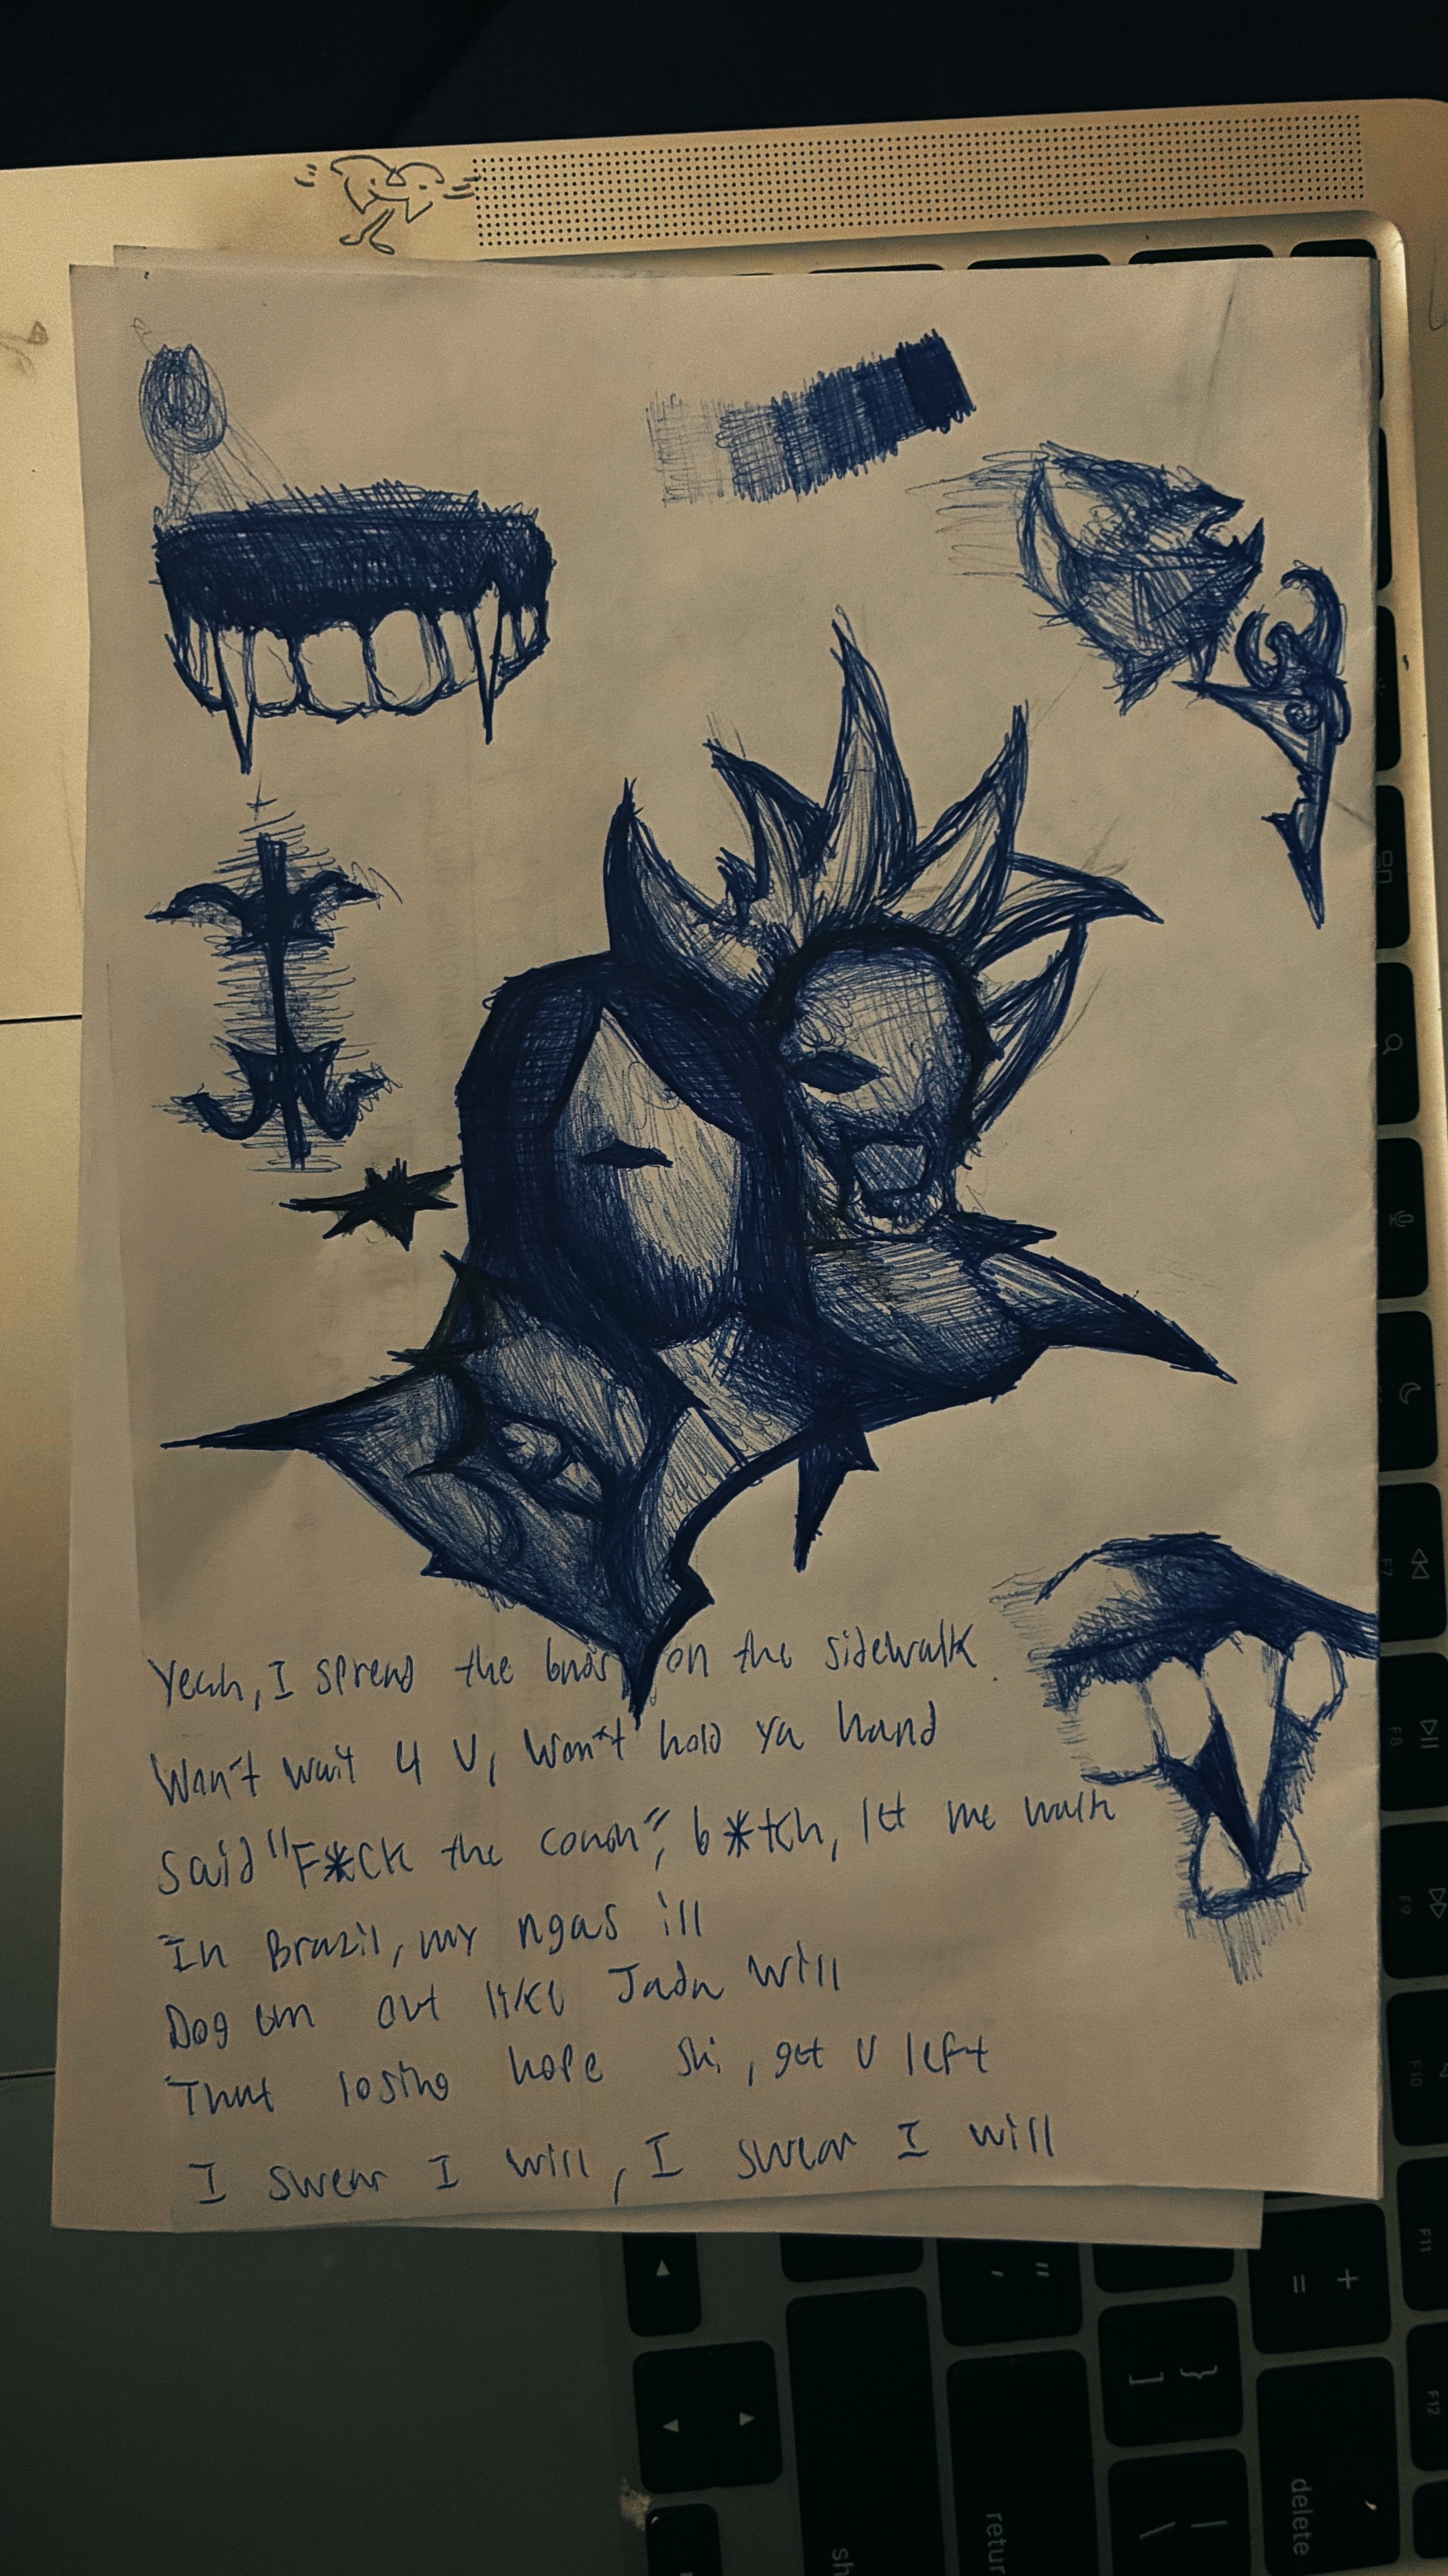 Yeah, I spread the bnds on the sidewalk
Won't wait 4 U, Won't hold ya hand
Said "F*ck the conan", b*tch, let me walk
In Brazil, my ngas ill
Dog em out like Jada Will
That losing hope shi, get U left
I swear I will, I swear I will
F7
F8
F9
F10
F11
F12
+
=
"
'
}
]
|
\
delete
return
sh